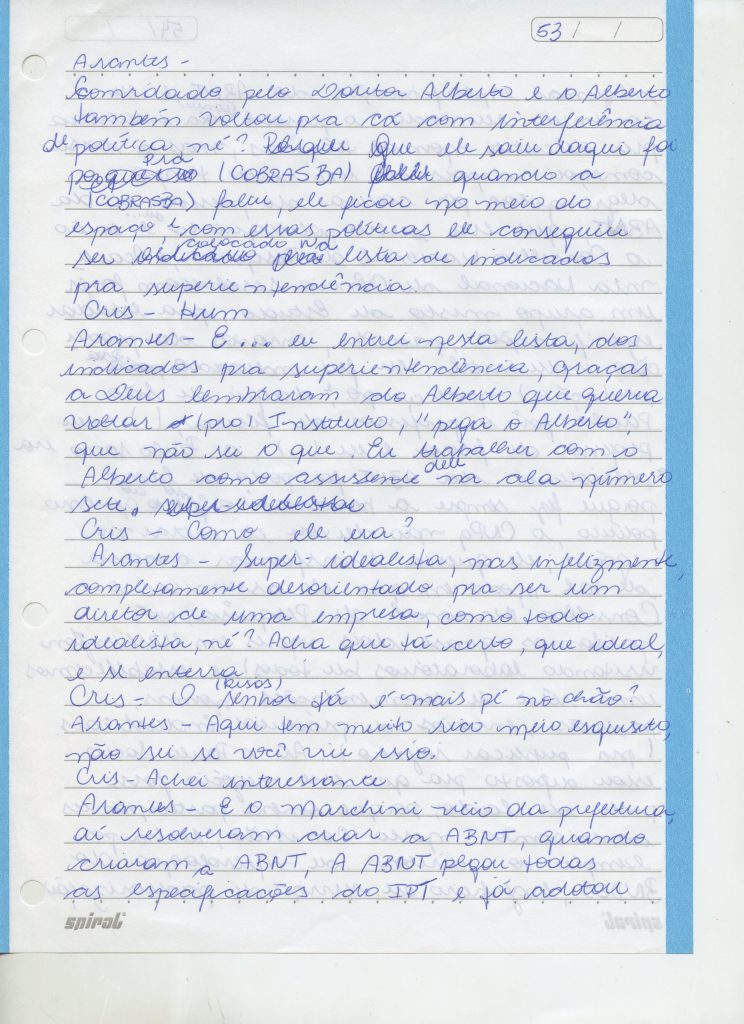 53 / /
Arantes -
Convidado pelo Doutor Alberto e o Alberto
também voltou pra cá com interferência
de política né? Porque que ele saiu daqui foi
pra (COBRASBA) quando a
(COBRASBA) faliu, ele ficou no meio do
espaço e com essas políticas ele conseguiu
ser colocado na lista de indicados
pra superientendência.
Cris - Hum
Arantes - E... eu entrei nesta lista, dos
indicados pra superientendência, graças
a Deus lembraram do Alberto que queria
voltar (pro) Instituto, "pega o Alberto",
que não sei o que. Eu trabalhei com o
Alberto como assistente deu na ala número
sete.
Cris - Como ele era?
Arantes - Super-idealista, mas infelizmente,
completamente desorientado pra ser um
diretor de uma empresa, como todo
idealista, né? Acha que tá certo, que ideal,
e se enterra
Cris - O senhor (risos) já é mais pé no chão?
Arantes - Aqui tem muito meio esquisito,
não sei se você viu isso.
Cris - Achei interessante
Arantes - E o Marchini veio da prefeitura,
aí resolveram criar a ABNT, quando
criaram a ABNT, A ABNT pegou todas
as especificações do IPT e já adotou
spiral